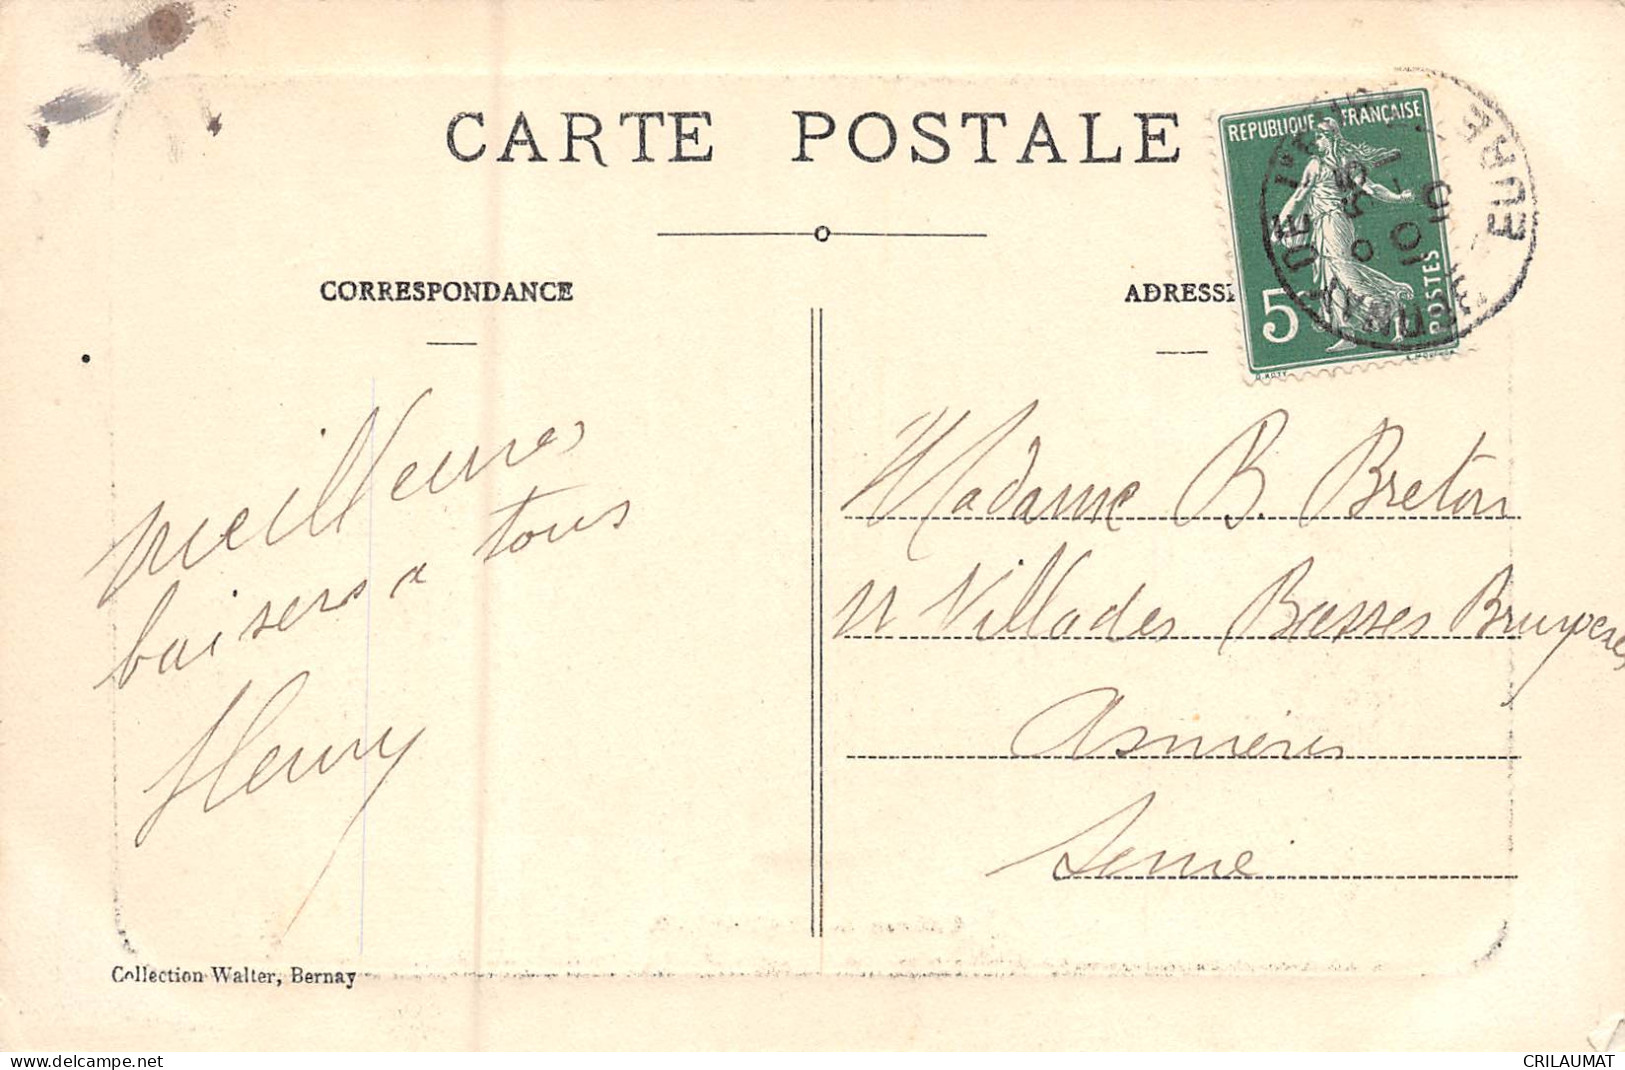 CARTE POSTALE
CORRESPONDANCE
ADRESSE
REPUBLIQUE FRANÇAISE
5
POSTES
EURE
meilleures
baisers a tous
Henry
Madame B. Breton
11 Villa des Basses Bruyères
Asnières
Seine
Collection Walter, Bernay
https://www.delcampe.net
CRILAUMAT